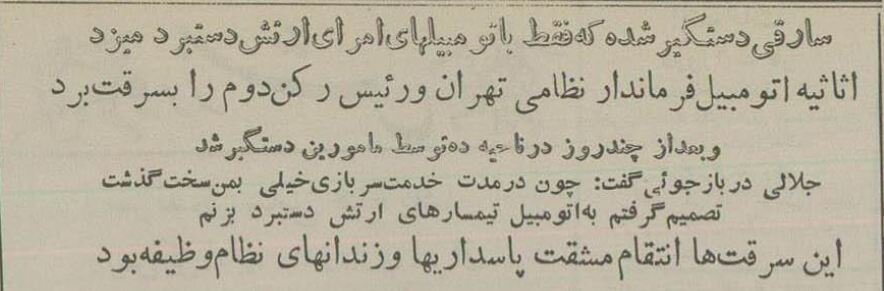 سارقی دستگیر شده که فقط باتومبیلهای امرای ارتش دستبرد میزد
اثاثیه اتومبیل فرماندار نظامی تهران ورئیس رکن دوم را بسرقت برد
وبعداز چندروز درناحیه ده توسط مامورین دستگیر شد
جلالی دربازجوئی گفت: چون درمدت خدمت سربازی خیلی بمن سخت گذشت
تصمیم گرفتم به اتومبیل تیمسارهای ارتش دستبرد بزنم
این سرقت‌ها انتقام مشقت پاسداریها وزندانهای نظام وظیفه بود